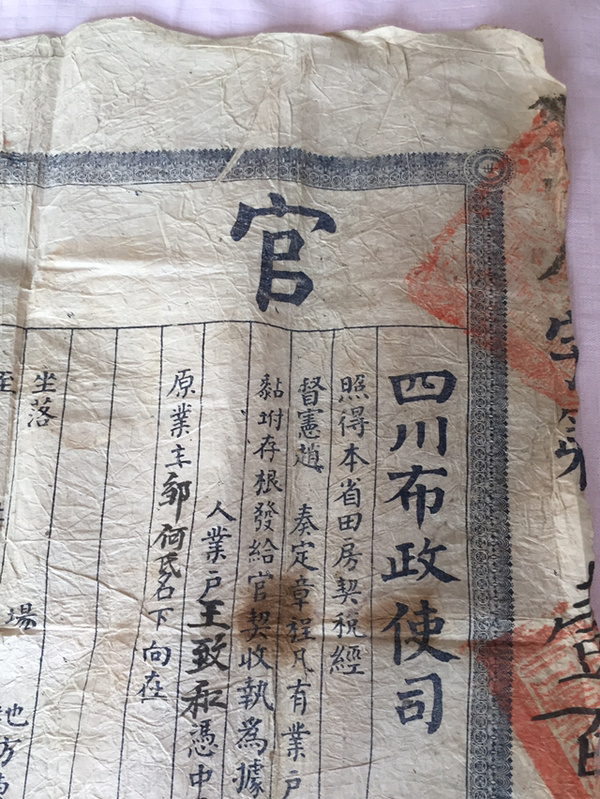 官
四川布政使司
照得本省田房契稅經
督憲趙 奏定章程凡有業戶
黏坿存根發給官契收執為據
人業戶王致和憑中
原業主鄒何氏名下向在
坐落
場
地方
字第
壹百